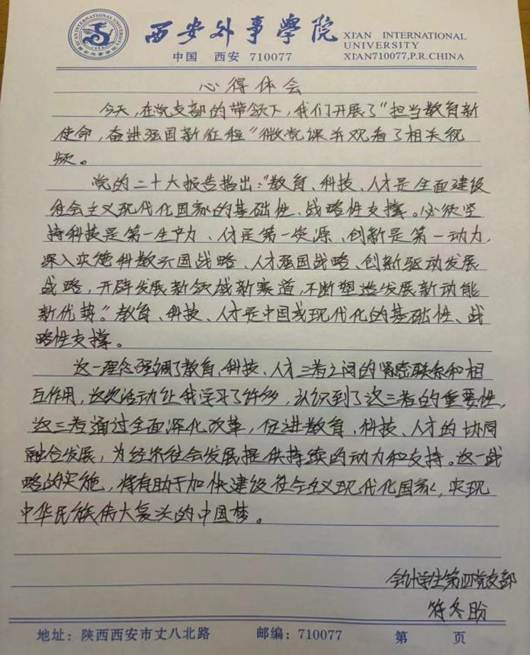 西安外事学院 XIAN INTERNATIONAL
UNIVERSITY
中国 西安 710077 XIAN710077,P.R.CHINA
心得体会
今天,在党支部的带领下,我们开展了“担当教育新
使命,奋进强国新征程”微党课并观看了相关视
频。
党的二十大报告指出:“教育、科技、人才是全面建设
社会主义现代化国家的基础性、战略性支撑。必须坚
持科技是第一生产力、人才是第一资源、创新是第一动力,
深入实施科教兴国战略、人才强国战略、创新驱动发展
战略,开辟发展新领域新赛道,不断塑造发展新动能
新优势。”教育、科技、人才是中国式现代化的基础性、战
略性支撑。
这一理念强调了教育、科技、人才三者之间的紧密联系和相
互作用,这次活动让我学习了许多,认识到了这三者的重要性,
这三者通过全面深化改革,促进教育、科技、人才的协同
融合发展,为经济社会发展提供持续的动力和支持。这一战
略的实施,将有助于加快建设社会主义现代化国家,实现
中华民族伟大复兴的中国梦。
会计学生第四党支部
符冬盼
地址:陕西西安市丈八北路 邮编:710077 第 页